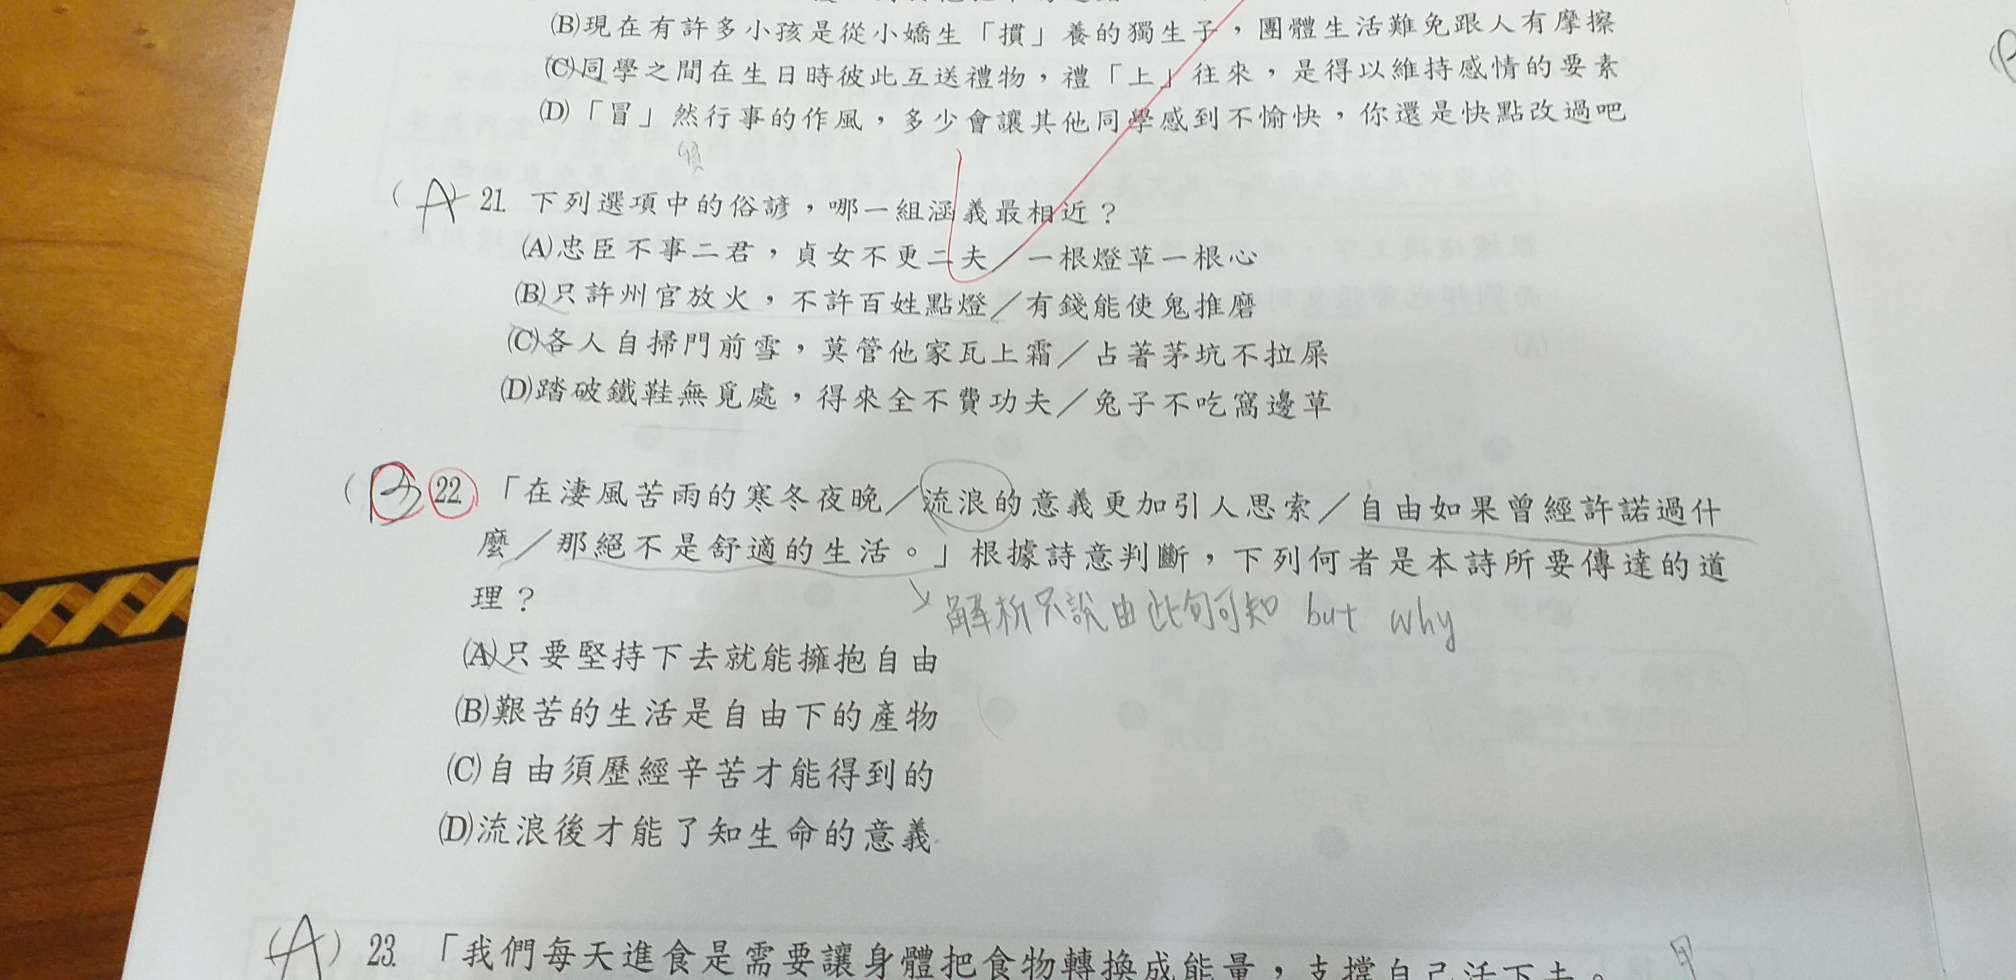 (B)現在有許多小孩是從小嬌生「摜」養的獨生子，團體生活難免跟人有摩擦
(C)同學之間在生日時彼此互送禮物，禮「上」往來，是得以維持感情的要素
(D)「冒」然行事的作風，多少會讓其他同學感到不愉快，你還是快點改過吧
(A) 21. 下列選項中的俗諺，哪一組涵義最相近？
(A)忠臣不事二君，貞女不更二夫／一根燈草一根心
(B)只許州官放火，不許百姓點燈／有錢能使鬼推磨
(C)各人自掃門前雪，莫管他家瓦上霜／占著茅坑不拉屎
(D)踏破鐵鞋無覓處，得來全不費功夫／兔子不吃窩邊草
22. 「在淒風苦雨的寒冬夜晚／流浪的意義更加引人思索／自由如果曾經許諾過什
麼／那絕不是舒適的生活。」根據詩意判斷，下列何者是本詩所要傳達的道
理？
解析只說由此句可知 but why
(A)只要堅持下去就能擁抱自由
(B)艱苦的生活是自由下的產物
(C)自由須歷經辛苦才能得到的
(D)流浪後才能了知生命的意義
(A) 23. 「我們每天進食是需要讓身體把食物轉換成能量，支撐自己活下去。